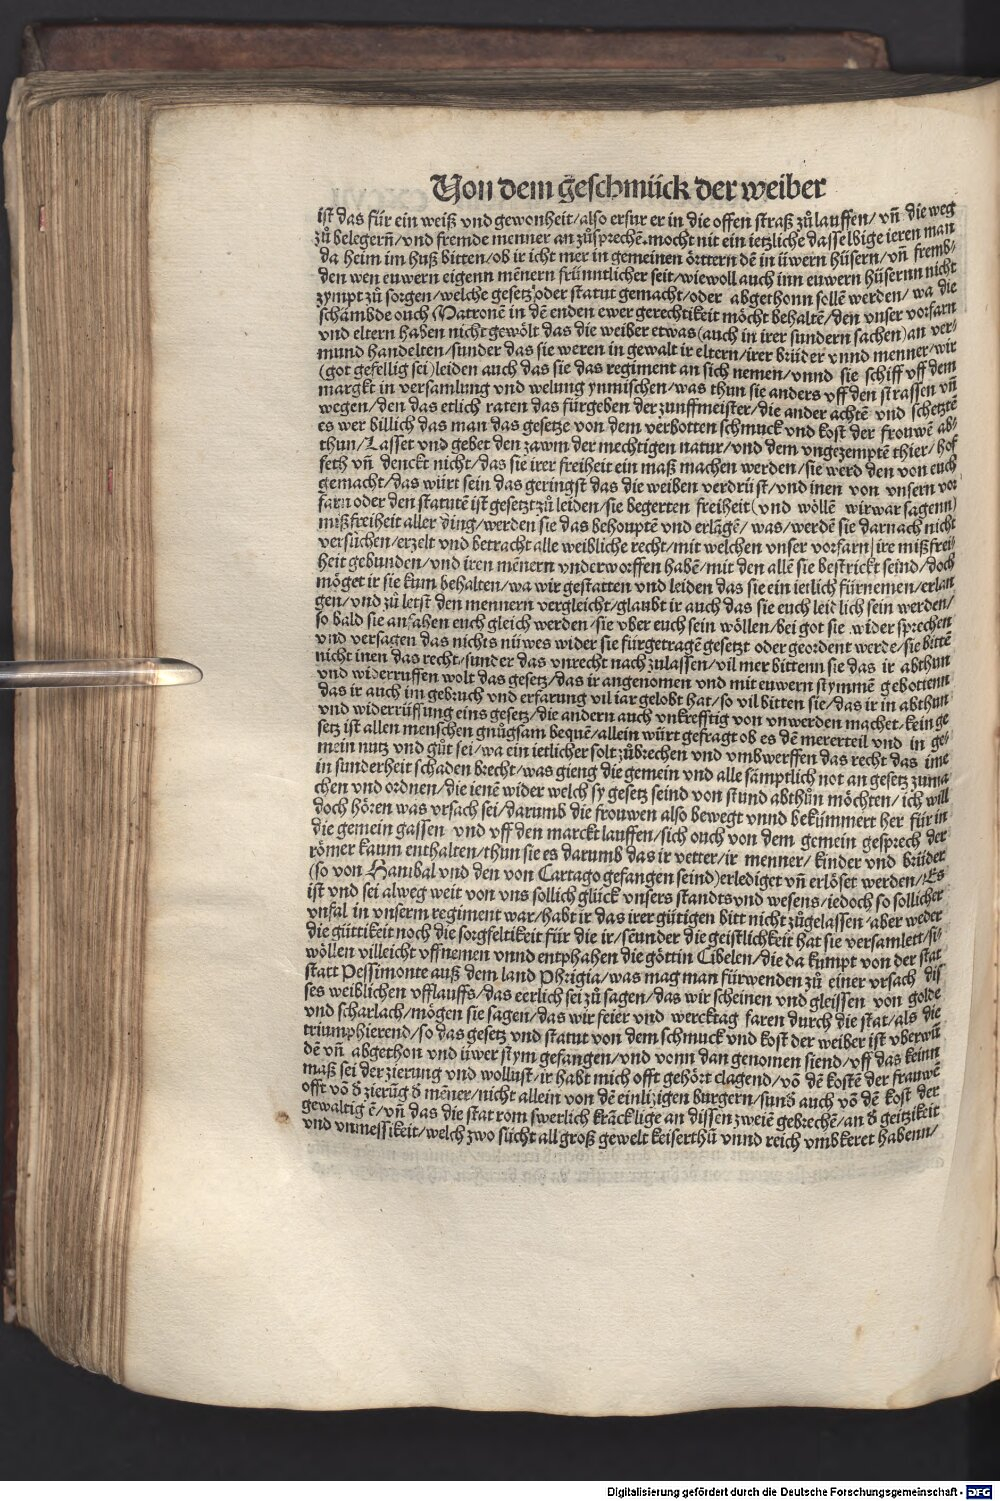 Von dem geschmück der weiber
ist das für ein weiß vnd gewonheit/also ersur er in die offen straß zů lauffen/ vn̄ die weg
zů belegern̄/vnd fremde menner an zůsprechē.mocht nit ein ietzliche dasselbige ieren man
da heim im huß bitten/ob ir icht mer in gemeinen örttern dē in üwern hüsern/vn̄ fremb⸗
den wen euwern eigenn mēnern früuntlicher seit/wiewoll auch inn euwern hüsernn nicht
zympt zů sorgen/welche gesetz oder statut gemacht/oder abgethonn sollē werden/ wa die
schambde ouch Matronē in dē enden ewer gerechtikeit möcht behaltē/den vnser vorfarn
vnd eltern haben nicht gewölt das die weiber etwas(auch in irer sundern sachen)an ver⸗
mund handelten/sunder das sie weren in gewalt ir eltern/irer brüder vnnd menner/wir
(got gefellig sei)leiden auch das sie das regiment an sich nemen/vnnd sie schiff vff dem
margkt in versamlung vnd welung ynmischen/was thun sie anders vff den strassen vn̄
wegen/den das etlich raten das fürgeben der zunffmeister/die ander achtē vnd schetztē
es wer billich das man das gesetze von dem verbotten schmuck vnd kost der frouwē ab⸗
thun/Lasset vnd gebet den zawm der mechtigen natur/vnd dem vngezemptē thier/hof
feth vn̄ denckt nicht/das sie irer freiheit ein maß machen werden/sie werd den von euch
gemacht/das würt sein das geringst das die weiben verdrüst/vnd inen von vnsern vor
farn oder den statutē ist gesetzt zů leiden/sie begerten freiheit(vnd wöllē wir war sagenn)
mißfreiheit aller ding/werden sie das behouptē vnd erlāgē/ was/werdē sie darnach nicht
versůchen/erzelt vnd betracht alle weibliche recht/mit welchen vnser vorfarn/ire mißfrei⸗
heit gebunden/vnd iren mēnern vnderworffen habē/mit den allē sie bestrickt seind/doch
möget ir sie kum behalten/wa wir gestatten vnd leiden das sie ein ietlich fürnemen/erlan
gen/vnd zů letst den mennern vergleicht/glaubt ir auch das sie euch leidlich sein werden/
so bald sie anfahen euch gleich werden/sie vber euch sein wöllen/bei got sie wider sprechen
vnd versagen das nichts nüwes wider sie fürgetragē gesetzt oder geordent werde/sie bittē
nicht inen das recht/sunder das vnrecht nach zulassen/vil mer bittenn sie das ir abthun
vnd widerruffen wolt das gesetz/das ir angenomen vnd mit euwern stymmē gebottenn
das ir auch im gebruch vnd erfarung vil iar gelobt hat/so vil bitten sie/das ir in abthun
vnd widerrüffung eins gesetz/die andern auch vnkrefftig von vnwerden machet/kein ge
setz ist allen menschen gnůgsam bequē/allein würt gefragt ob es dē mererteil vnd in ge⸗
mein nutz vnd gůt sei/wa ein ietlicher solt zůbrechen vnd vmbwerffen das recht das ime
in sunderheit schaden brecht/was gieng die gemein vnd alle sämptlich not an gesetz zuma
chen vnd ordnen/die ienē wider welch sy gesetz seind von stund abthůn möchten/ ich will
doch hören was vrsach sei/darumb die frouwen also bewegt vnnd bekümmert her für in
die gemein gassen vnd vff den marckt lauffen/sich ouch von dem gemein gesprech der
römer kaum enthalten/thun sie es darumb das ir vetter/ir menner/ kinder vnd brüder
(so von Hanibal vnd den von Cartago gefangen seind)erlediget vn̄ erlöset werden/Es
ist vnd sei alweg weit von vns sollich glück vnsers standts vnd wesens/iedoch so sollicher
vnfal in vnserm regiment war/habt ir das irer gütigen bitt nicht zůgelassen/aber weder
die güttikeit noch die sorgfeltikeit für die ir/sēunder die geistlichkeit hat sie versamlett/si⸗
wöllen villeicht vffnemen vnnd entphahen die göttin Cibelen/die da kumpt von der stat
statt Pessimonte auß dem land Phrigia/was mag man fürwenden zů einer vrsach dis
ses weiblichen vfflauffs/das eerlich sei zů sagen/das wir scheinen vnd gleissen von golde
vnd scharlach/mögen sie sagen/das wir feier vnd wercktag faren durch die stat/als die
triumphierend/so das gesetz vnd statut von dem schmuck vnd kost der weiber ist vberwū
dē vn̄ abgethon vnd üwer stym gefangen/vnd vonn dan genomen siend/vff das keinn
maß sei der zierung vnd wollust/ir habt mich offt gehört clagend/vō dē kostē der frauwē
offt vō d̄ zierūg d̄ mēner/nicht allein von dē einlizigen burgern/sund̄ auch vō dē kost der
gewaltig ē/vn̄ das die stat rom swerlich kräcklige an dissen zweiē gebrechē/an d̄ geitzikeit
vnd vnmessikeit/welch zwo sücht all groß gewelt keiserthū vnnd reich vmbkeret habenn/
Digitalisierung gefördert durch die Deutsche Forschungsgemeinschaft - DFG